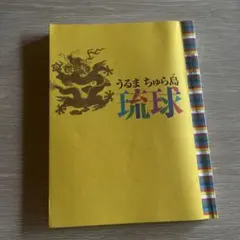 うるま ちゅら島
琉球